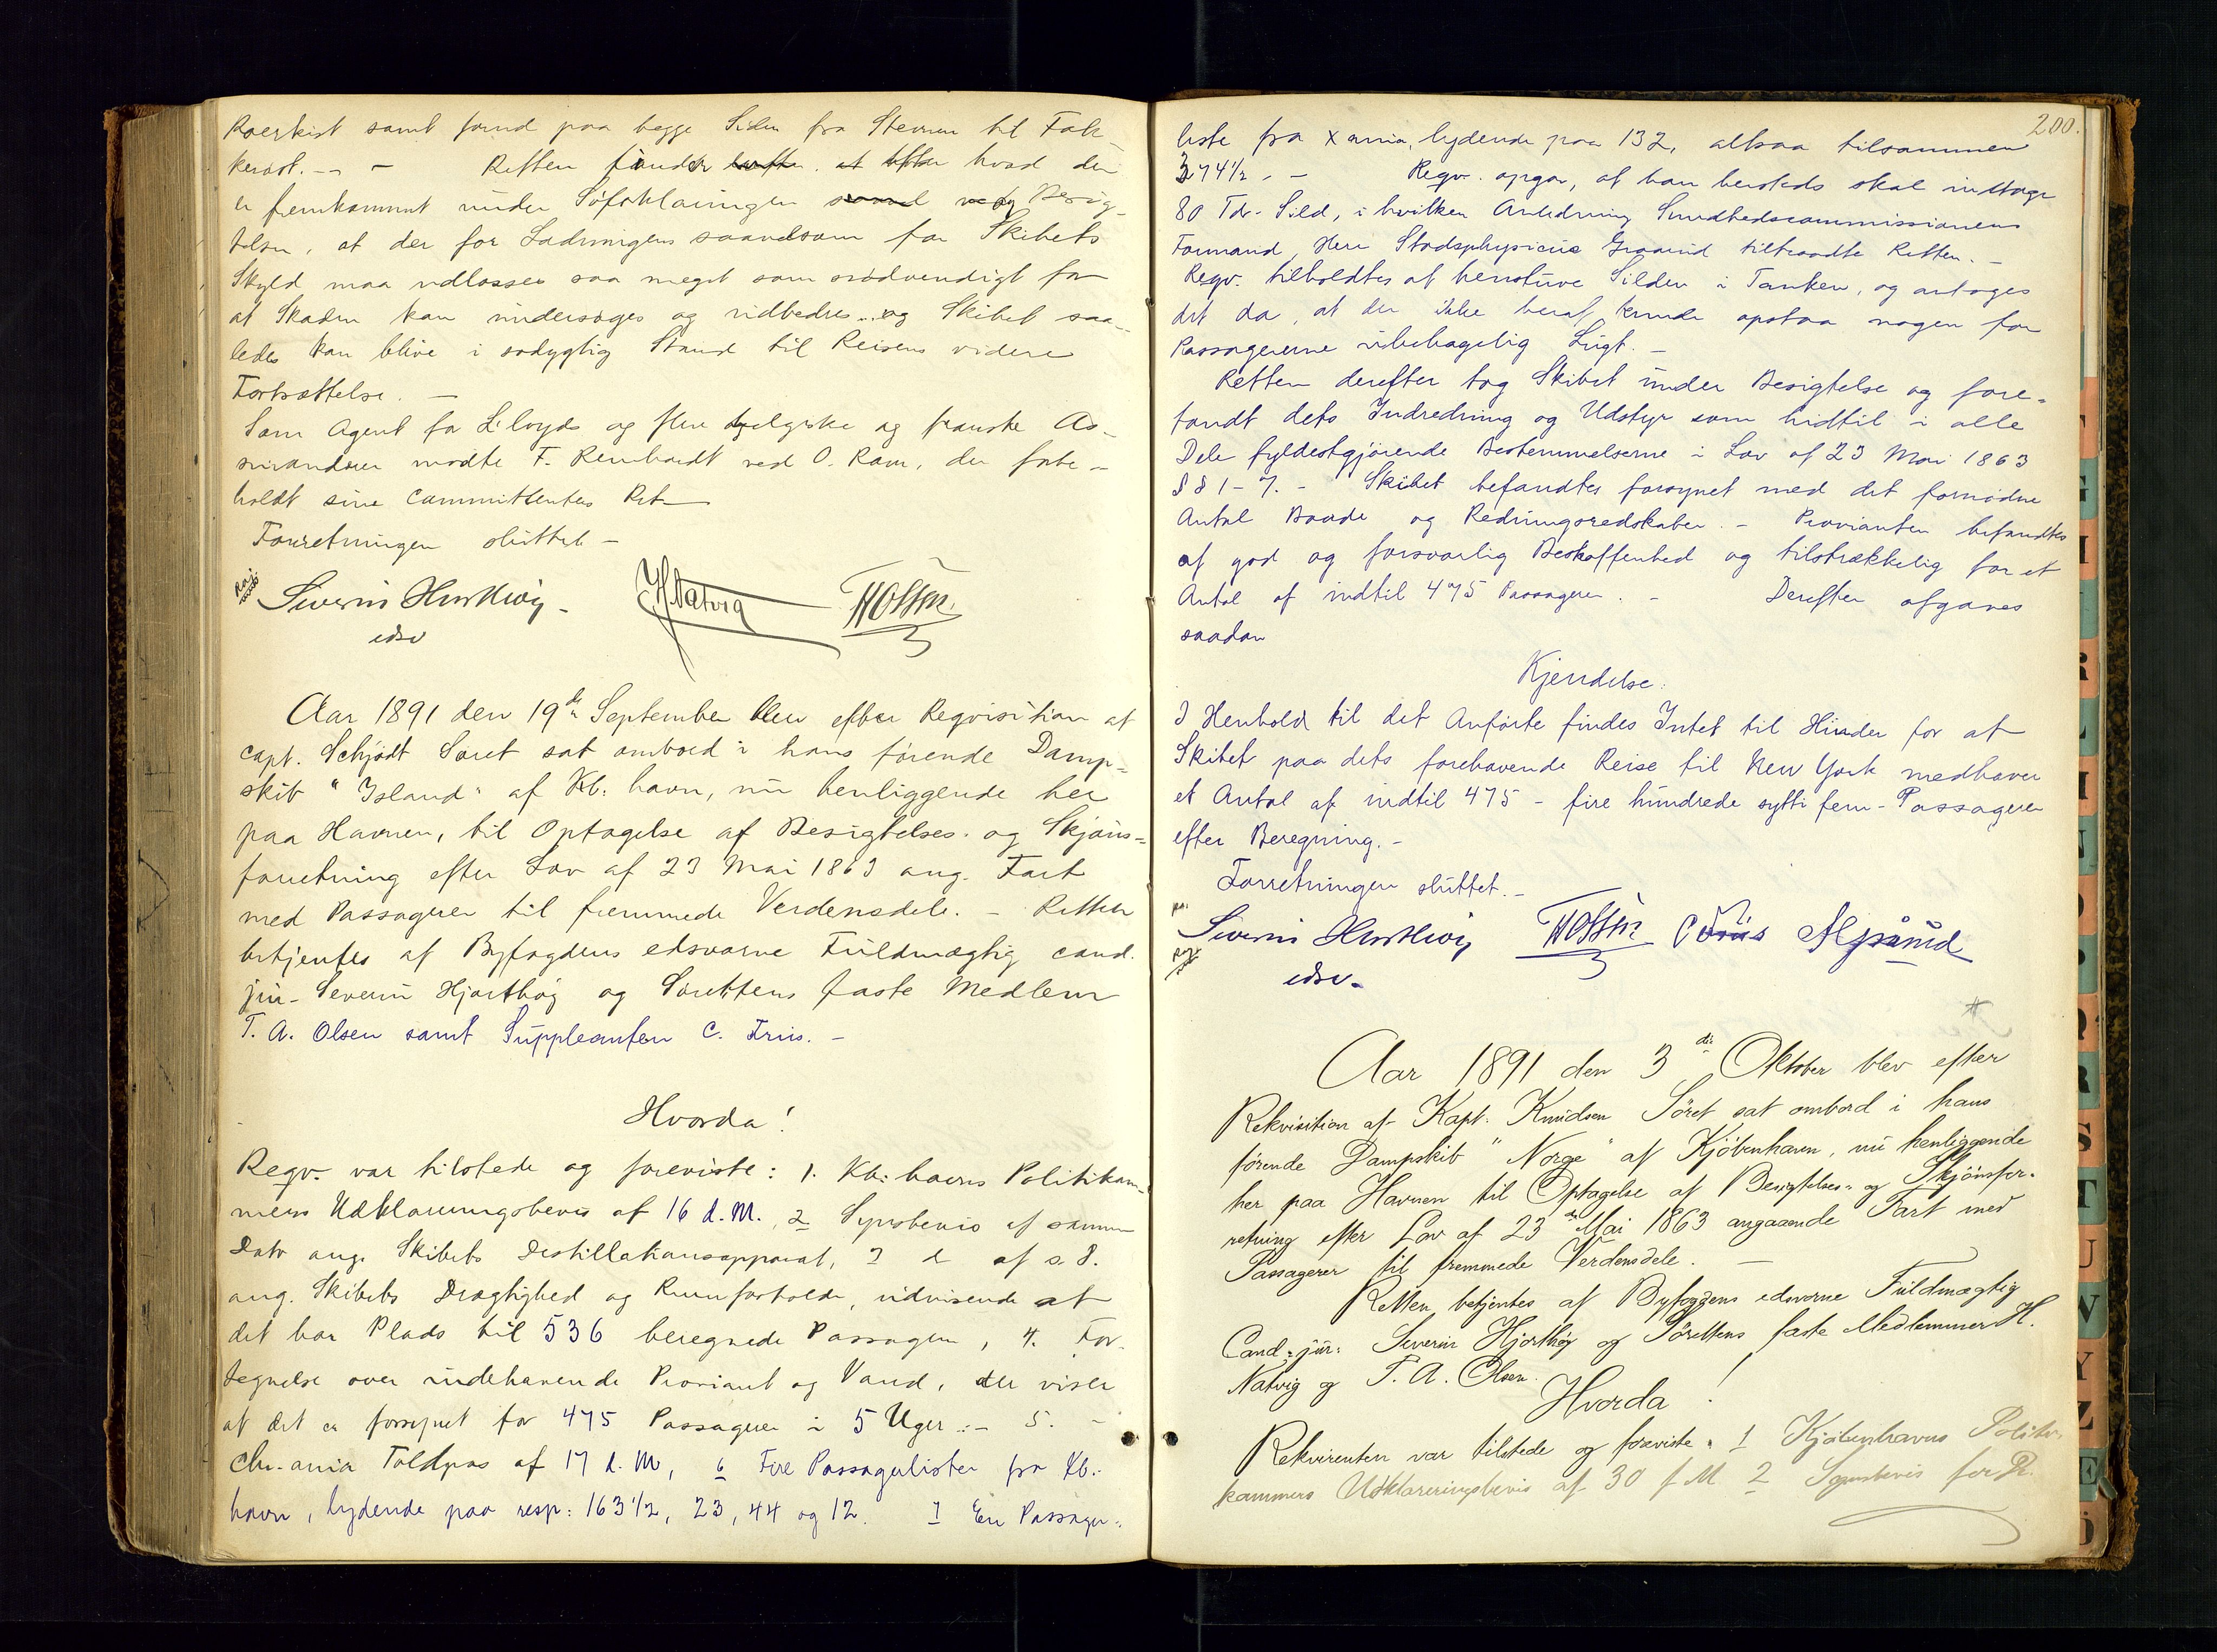 samt forud paa begge Sider fra Stevnen til Fok
kerøst. – – Retten finder at efter hvad der
er fremkommet under Søforklaringen og Besig-
telsen, at der for Ladningens saavelsom for Skibets
Skyld maa udlosses saa meget som nødvendigt for
at Skaden kan undersøges og udbedres og Skibet saa-
ledes kan blive i sødygtig Stand til Reisens videre
Fortsættelse. –
Som Agent for Lloyds og flere belgiske og franske As-
surandører mødte F. Reinhardt ved O. Ravn, der forbe-
holdt sine Committenters Ret
Forretningen sluttet –
Severin Hjorthøy
edsv
H. Natvig
T A Olsen
Aar 1891 den 19de September blev efter Reqvisition af
Capt. Schjödt Søret sat ombord i hans førende Damp=
skib "Island" af Kb:havn, nu henliggende her
paa Havnen, til Optagelse af Besigtelses- og Skjøns=
forretning efter Lov af 23 Mai 1863 ang. Fart
med Passagerer til fremmede Verdensdele. – Retten
betjentes af Byfogdens edsvorne Fuldmægtig cand.
jur. Severin Hjorthøy og Sørettens faste Medlem
T. A. Olsen samt Suppleanten C. Friis. –
Hvorda!
Reqv. var tilstede og foreviste: 1. Kb:havns Politikam-
mers Udklareringsbevis af 16 d.M., 2 Synsbevis af samme
Dato ang. Skibets Destillationsapparat, 3 d af s. D.
ang. Skibets Drægtighed og Rumforholde, udvisende at
det har Plads til 536 beregnede Passagerer, 4. For-
tegnelse over indehavende Proviant og Vand, der viser
at det er forsynet for 475 Passagerer i 5 Uger. – 5. –
Chr.ania Toldpas af 17 d. M, 6 Fire Passagerlister fra Kb.-
havn, lydende paa resp: 163 1/2, 23, 44 og 12. 7 En Passager-
200.
liste fra Xania, lydende paa 132, altsaa tilsammen
374 1/2. – Reqv. opgav, at han hersteds skal indtage
80 Tdr. Sild, i hvilken Anledning Sundhedscommissionens
Formand, Herr Stadsphysicus Graarud tiltraadte Retten. –
Reqv. tilholdtes at henstuve Silden i Tanken, og antoges
det da, at der ikke heraf kunde opstaa nogen for
Passagererne ubehagelig Lugt. –
Retten derefter tog Skibet under Besigtelse og fore-
fandt dets Indredning og Udstyr som hidtil i alle
Dele fyldestgjørende Bestemmelserne i Lov af 23 Mai 1863
§§ 1-7. – Skibet befandtes forsynet med det fornødne
Antal Baade og Redningsredskaber. – Provianten befandtes
af god og forsvarlig Beskaffenhed og tilstrækkelig for et
Antal af indtil 475 Passagerer. – Derefter afgaves
saadan
Kjendelse:
I Henhold til det Anførte findes Intet til Hinder for at
Skibet paa dets forehavende Reise til New York medhaver
et Antal af indtil 475 – fire hundrede sytti fem – Passagerer
efter Beregning. –
Forretningen sluttet. –
Severin Hjorthøy
edsv.
T A Olsen
C Friis
Aar 1891 den 3die Oktober blev efter
Rekvisition af Kapt. Knudsen Söret sat ombord i hans
førende Dampskib "Norge" af Kjöbenhavn, nu henliggende
her paa Havnen til Optagelse af Besigtelses- og Skjönsfor-
retning efter Lov af 23de Mai 1863 angaaende Fart med
Passagerer til fremmede Verdensdele. –
Retten betjentes af Byfogdens edsvorne Fuldmægtig
Cand. jur. Severin Hjorthøy og Sörettens faste Medlemmer H.
Natvig og T. A. Olsen.
Hvorda!
Rekvirenten var tilstede og foreviste: 1 Kjöbenhavns Politi-
kammers Udklareringsbevis af 30 f M 2 Synsbevis for